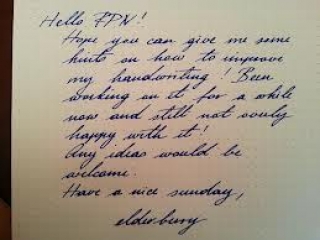 Hello FPN!
Hope you can give me some
hints on how to improve
my handwriting! Been
working on it for a while
now and still not overly
happy with it!
Any ideas would be
welcome.
Have a nice sunday,
elderberry